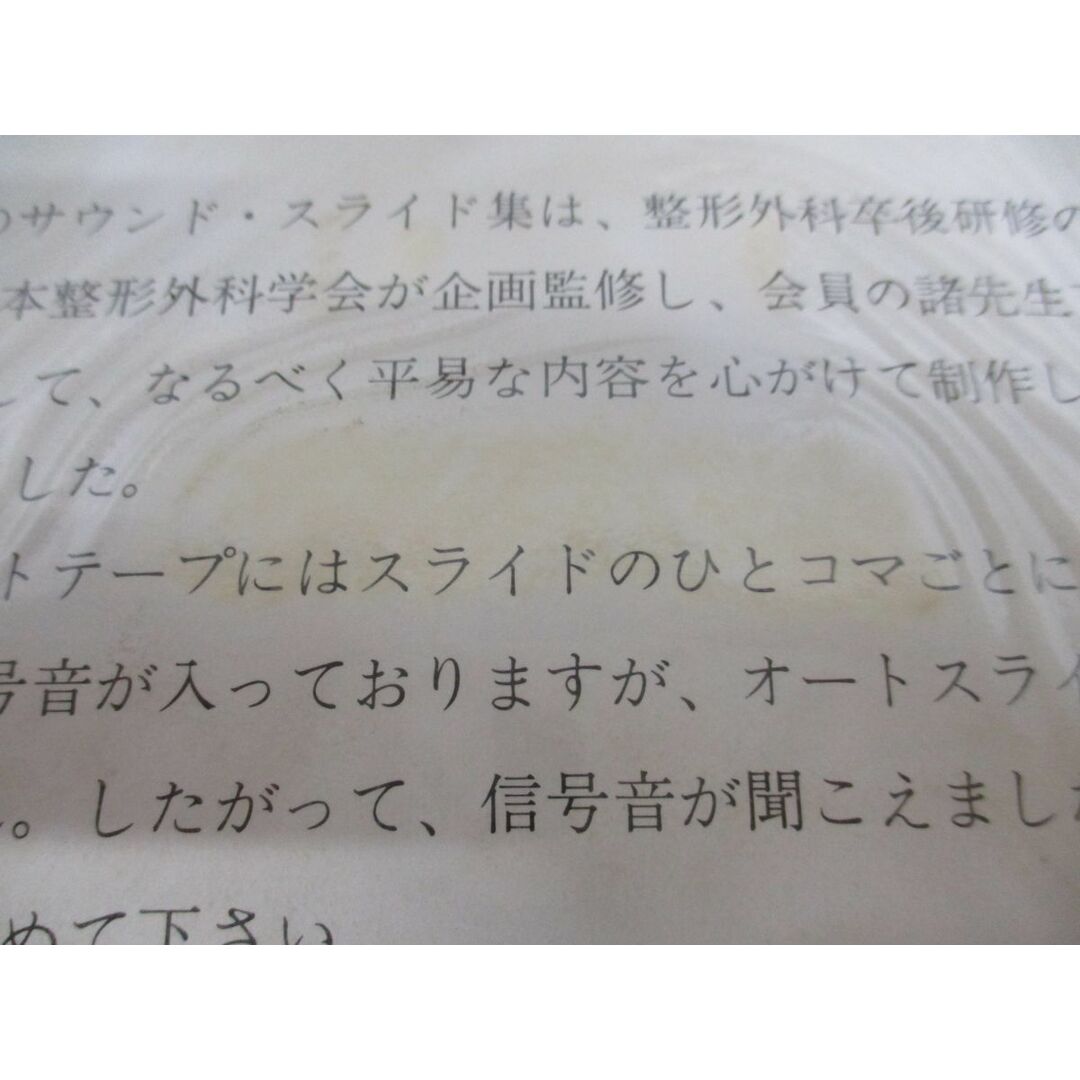 のサウンド・スライド集は、整形外科卒後研修の
本整形外科学会が企画監修し、会員の諸先生
して、なるべく平易な内容を心がけて制作し
した。
トテープにはスライドのひとコマごとに
号音が入っておりますが、オートスライ
。したがって、信号音が聞こえまし
めて下さい